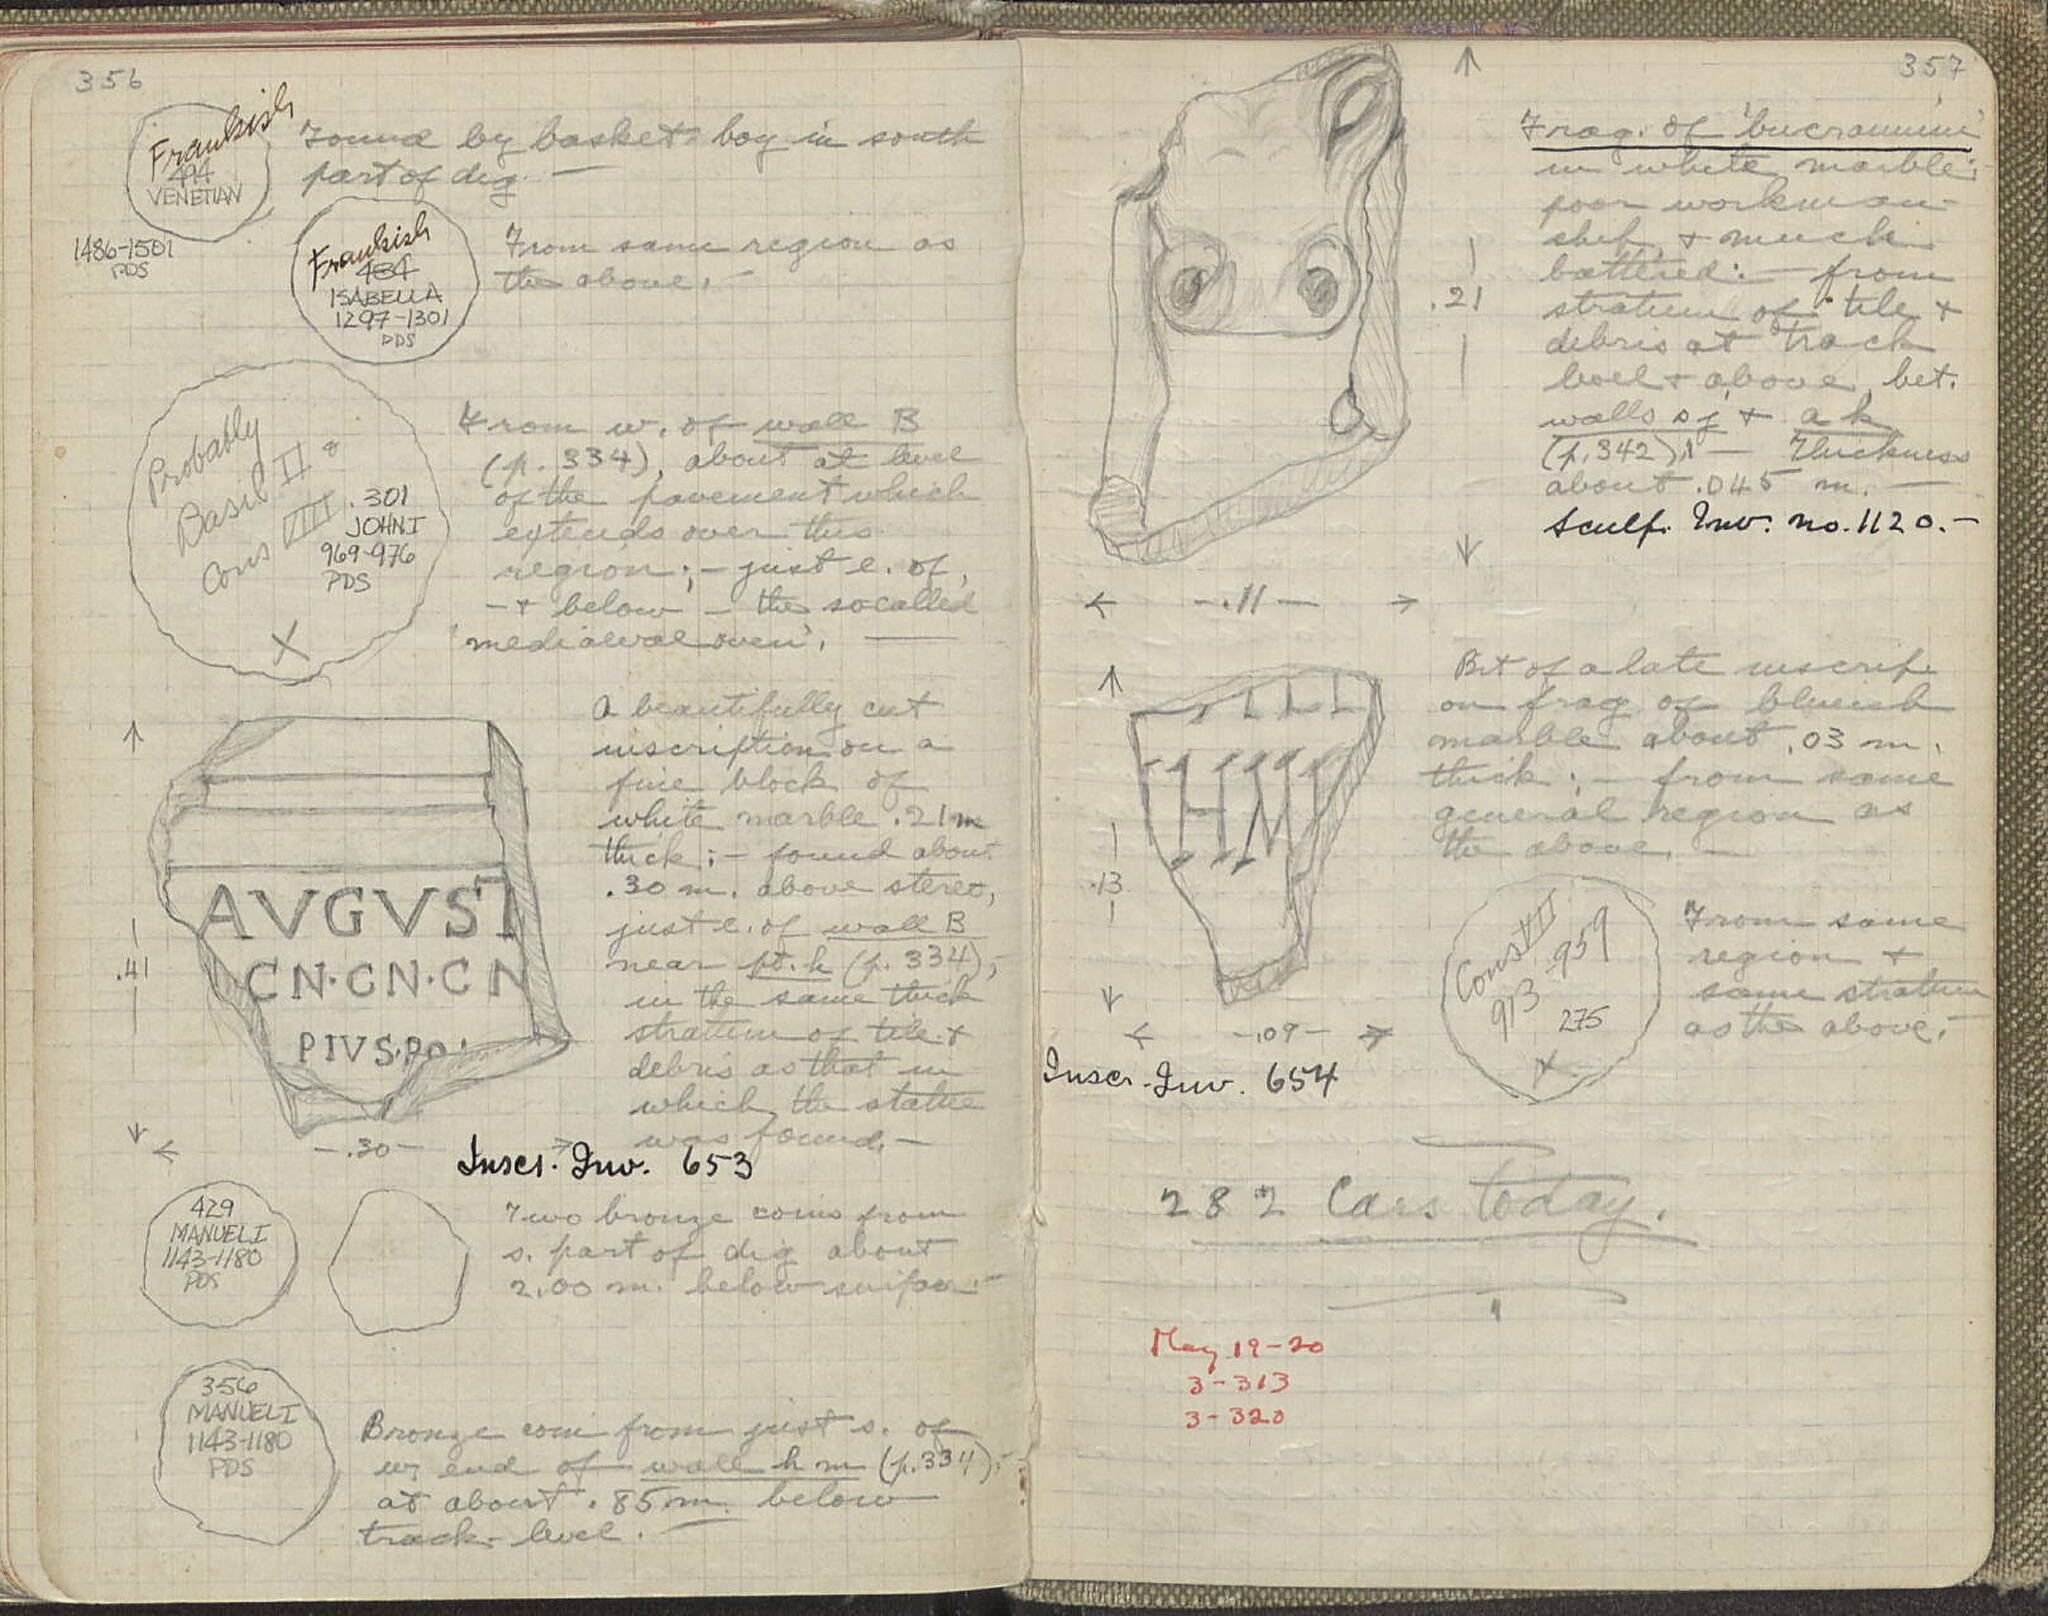 356
Frankish
494
VENETIAN
1486-1501
PDS
Found by basket-boy in south
part of dig. —
Frankish
484
ISABELLA
1297-1301
PDS
From same region as
the above. —
Probably
Basil II &
Cons VIII
.301
JOHN I
969-976
PDS
X
From w. of wall B
(p. 334), about at level
of the pavement which
extends over this
region; — just e. of,
— & below — the socalled
'mediaeval oven'. —
A beautifully cut
inscription on a
fine block of
white marble .21 m
thick; — found about
.30 m. above stereo,
just e. of wall B
near pt. h (p. 334); —
in the same thick
stratum of tile &
debris as that in
which the statue
was found. —
AVGVST
CN·CN·CN
PIVS·PO
.41
— .30 —
Inscr. Inv. 653
429
MANUEL I
1143-1180
PDS
Two bronze coins from
s. part of dig about
2.00 m. below surface. —
356
MANUEL I
1143-1180
PDS
Bronze coin from just s. of
w. end of wall h m (p. 334); —
at about .85 m. below
track-level. —
357
Frag. of 'bucranium'
in white marble; —
poor workman-
ship & much
battered: — from
stratum of tile &
debris at track
level & above, bet.
walls sj & a k
(p. 342); — Thickness
about .045 m. —
Sculp. Inv. no. 1120. —
.21
— .11 —
Bit of a late inscrip.
on frag of blueish
marble about .03 m.
thick; — from same
general region as
the above. —
HM
.13
— .09 —
Inscr. Inv. 654
Const VII
913-959
275
X
From same
region &
same stratum
as the above. —
282 Cars today.
May 19-20
3-313
3-320